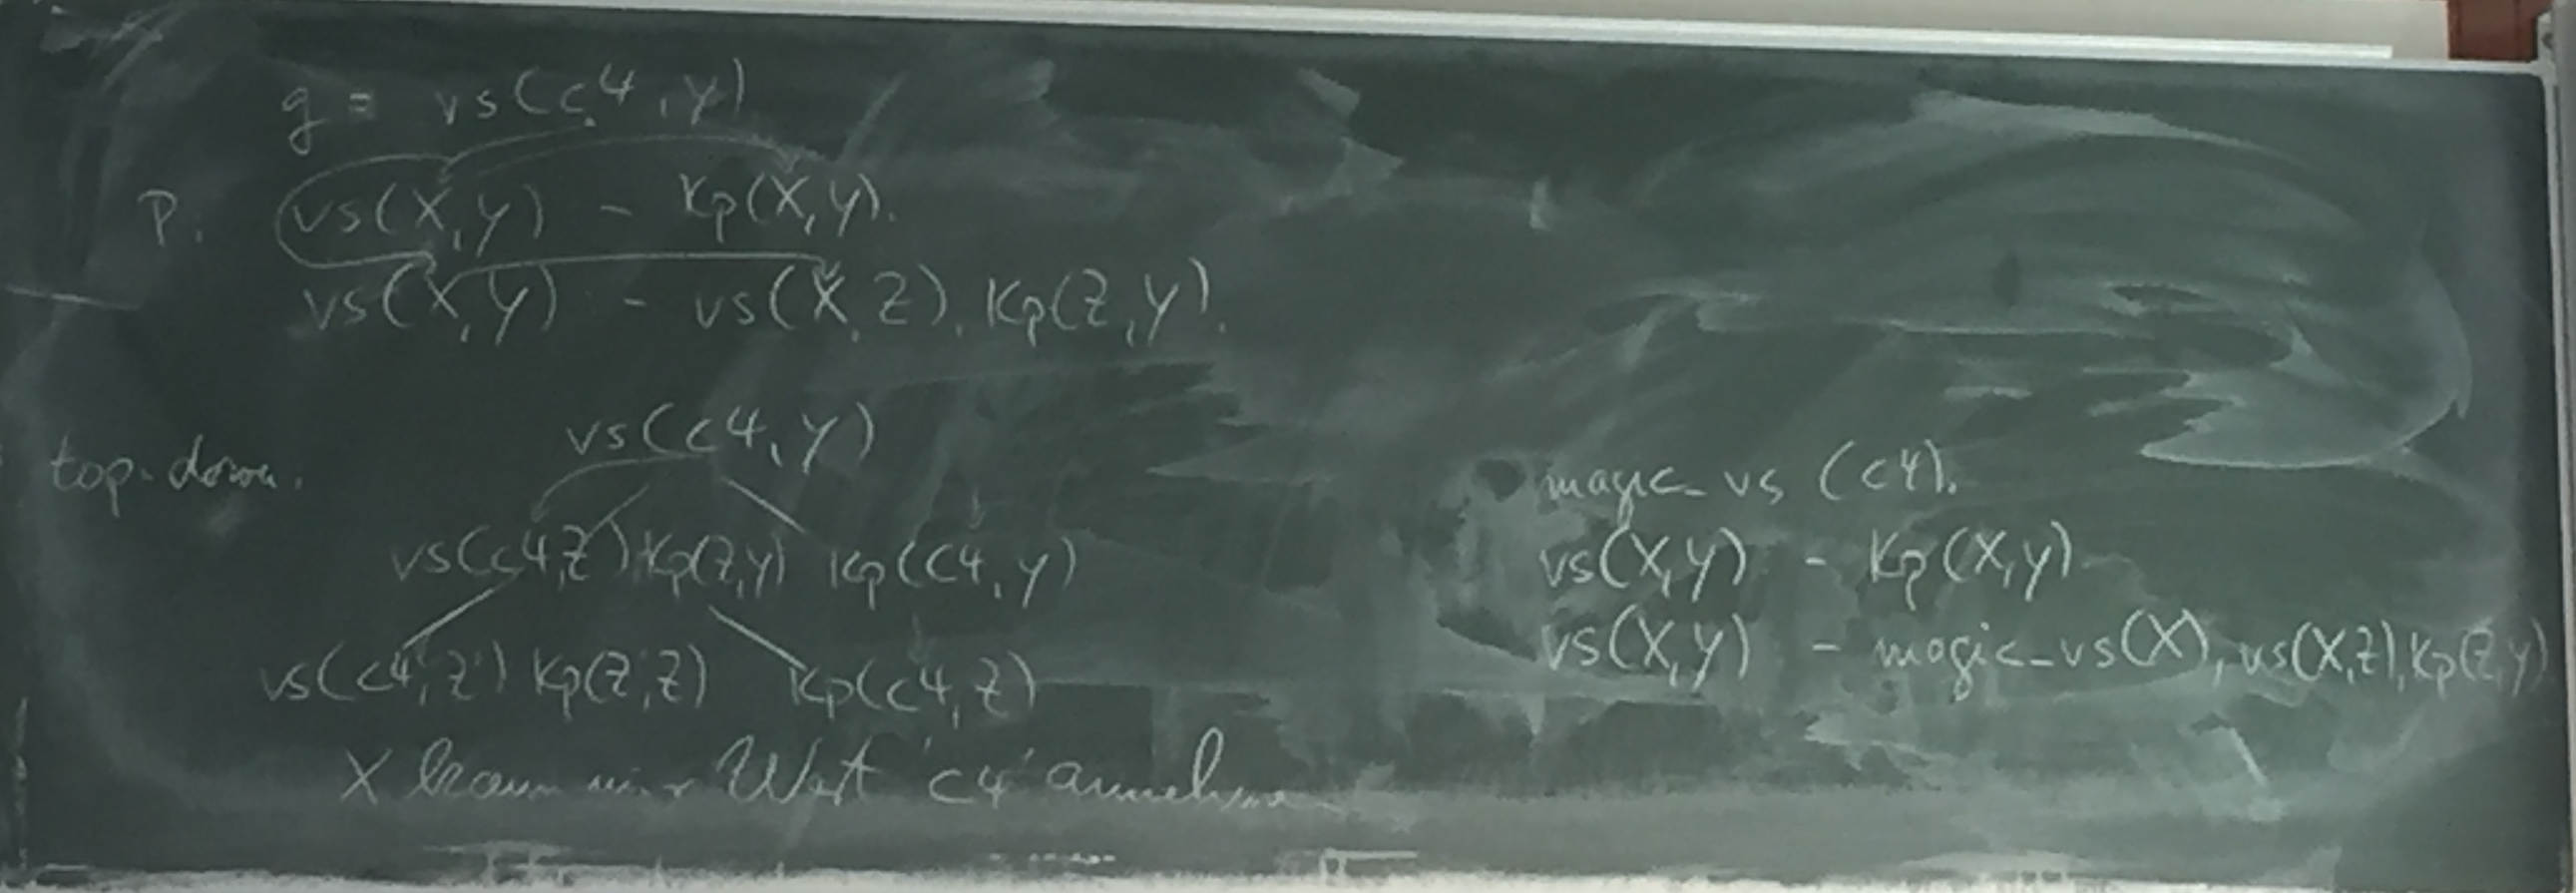 g = vs(c4, y)
P. vs(X, y) - Kp(X, y).
vs(X, y) - vs(X, Z), Kp(Z, y).
top-down.
vs(c4, y)
vs(c4, Z) Kp(Z, y) Kp(c4, y)
vs(c4, Z') Kp(Z', Z) Kp(c4, Z)
X kann nur Wert 'c4' annehmen
magic_vs (c4).
vs(X, y) - Kp(X, y)
vs(X, y) - magic_vs(X), vs(X, Z), Kp(Z, y)